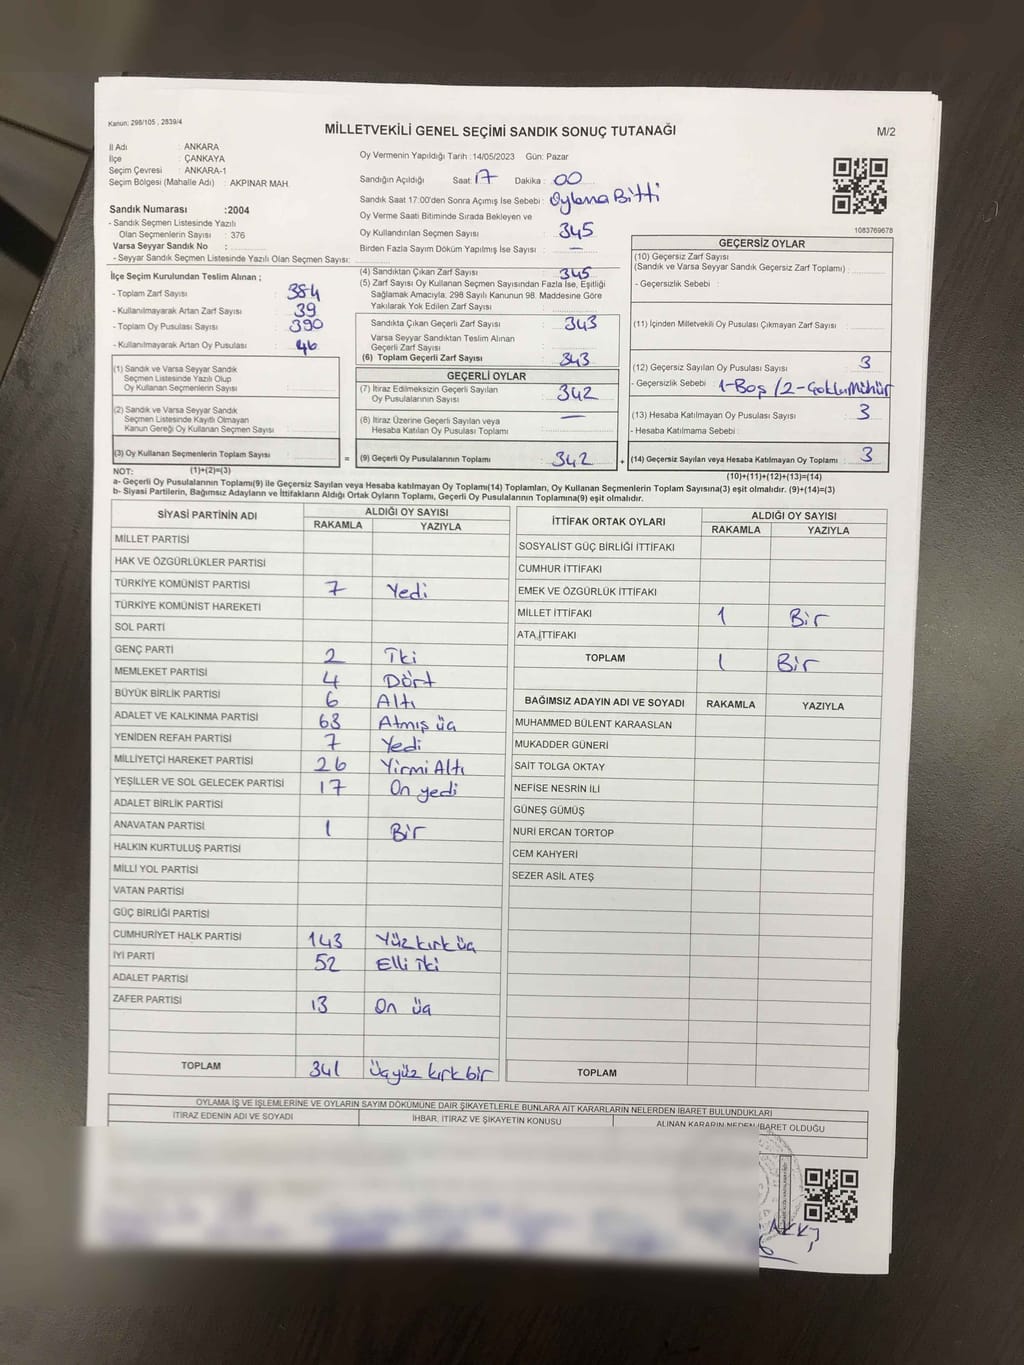 Kanun; 298/105 , 2839/4
MİLLETVEKİLİ GENEL SEÇİMİ SANDIK SONUÇ TUTANAĞI
M/2
İl Adı : ANKARA
İlçe : ÇANKAYA
Seçim Çevresi : ANKARA-1
Seçim Bölgesi (Mahalle Adı) : AKPINAR MAH.
Sandık Numarası :2004
- Sandık Seçmen Listesinde Yazılı
Olan Seçmenlerin Sayısı : 376
Varsa Seyyar Sandık No :
- Seyyar Sandık Seçmen Listesinde Yazılı Olan Seçmen Sayısı:
Oy Vermenin Yapıldığı Tarih :14/05/2023 Gün: Pazar
Sandığın Açıldığı Saat: 17 Dakika : 00
Sandık Saat 17:00'den Sonra Açımış İse Sebebi : Oylama Bitti
Oy Verme Saati Bitiminde Sırada Bekleyen ve
Oy Kullandırılan Seçmen Sayısı : 345
Birden Fazla Sayım Döküm Yapılmış İse Sayısı : —
1083769678
İlçe Seçim Kurulundan Teslim Alınan ;
- Toplam Zarf Sayısı : 384
- Kullanılmayarak Artan Zarf Sayısı : 39
- Toplam Oy Pusulası Sayısı : 390
- Kullanılmayarak Artan Oy Pusulası : 46
(1) Sandık ve Varsa Seyyar Sandık
Seçmen Listesinde Yazılı Olup
Oy Kullanan Seçmenlerin Sayısı :
(2) Sandık ve Varsa Seyyar Sandık
Seçmen Listesinde Kayıtlı Olmayan
Kanun Gereği Oy Kullanan Seçmen Sayısı :
(3) Oy Kullanan Seçmenlerin Toplam Sayısı :
=
(4) Sandıktan Çıkan Zarf Sayısı : 345
(5) Zarf Sayısı Oy Kullanan Seçmen Sayısından Fazla İse, Eşitliği
Sağlamak Amacıyla, 298 Sayılı Kanunun 98. Maddesine Göre
Yakılarak Yok Edilen Zarf Sayısı :
Sandıkta Çıkan Geçerli Zarf Sayısı : 343
Varsa Seyyar Sandıktan Teslim Alınan
Geçerli Zarf Sayısı :
(6) Toplam Geçerli Zarf Sayısı : 343
GEÇERLİ OYLAR
(7) İtiraz Edilmeksizin Geçerli Sayılan
Oy Pusulalarının Sayısı : 342
(8) İtiraz Üzerine Geçerli Sayılan veya
Hesaba Katılan Oy Pusulası Toplamı : —
(9) Geçerli Oy Pusulalarının Toplamı : 342
+
GEÇERSİZ OYLAR
(10) Geçersiz Zarf Sayısı
(Sandık ve Varsa Seyyar Sandık Geçersiz Zarf Toplamı) :
- Geçersizlik Sebebi :
(11) İçinden Milletvekili Oy Pusulası Çıkmayan Zarf Sayısı :
(12) Geçersiz Sayılan Oy Pusulası Sayısı : 3
- Geçersizlik Sebebi : 1-Boş / 2-Çoklu Mühür
(13) Hesaba Katılmayan Oy Pusulası Sayısı : 3
- Hesaba Katılmama Sebebi :
(14) Geçersiz Sayılan veya Hesaba Katılmayan Oy Toplamı : 3
NOT: (1)+(2)=(3) (10)+(11)+(12)+(13)=(14)
a- Geçerli Oy Pusulalarının Toplamı(9) ile Geçersiz Sayılan veya Hesaba katılmayan Oy Toplamı(14) Toplamları, Oy Kullanan Seçmenlerin Toplam Sayısına(3) eşit olmalıdır. (9)+(14)=(3)
b- Siyasi Partilerin, Bağımsız Adayların ve İttifakların Aldığı Ortak Oyların Toplamı, Geçerli Oy Pusulalarının Toplamına(9) eşit olmalıdır.
SİYASİ PARTİNİN ADI ALDIĞI OY SAYISI
RAKAMLA YAZIYLA
MİLLET PARTİSİ
HAK VE ÖZGÜRLÜKLER PARTİSİ
TÜRKİYE KOMÜNİST PARTİSİ 7 Yedi
TÜRKİYE KOMÜNİST HAREKETİ
SOL PARTİ
GENÇ PARTİ 2 İki
MEMLEKET PARTİSİ 4 Dört
BÜYÜK BİRLİK PARTİSİ 6 Altı
ADALET VE KALKINMA PARTİSİ 63 Atmış üç
YENİDEN REFAH PARTİSİ 7 Yedi
MİLLİYETÇİ HAREKET PARTİSİ 26 Yirmi Altı
YEŞİLLER VE SOL GELECEK PARTİSİ 17 On yedi
ADALET BİRLİK PARTİSİ
ANAVATAN PARTİSİ 1 Bir
HALKIN KURTULUŞ PARTİSİ
MİLLİ YOL PARTİSİ
VATAN PARTİSİ
GÜÇ BİRLİĞİ PARTİSİ
CUMHURİYET HALK PARTİSİ 143 Yüz kırk üç
İYİ PARTİ 52 Elli iki
ADALET PARTİSİ
ZAFER PARTİSİ 13 On üç
TOPLAM 341 Üçyüz kırk bir
İTTİFAK ORTAK OYLARI ALDIĞI OY SAYISI
RAKAMLA YAZIYLA
SOSYALİST GÜÇ BİRLİĞİ İTTİFAKI
CUMHUR İTTİFAKI
EMEK VE ÖZGÜRLÜK İTTİFAKI
MİLLET İTTİFAKI 1 Bir
ATA İTTİFAKI
TOPLAM 1 Bir
BAĞIMSIZ ADAYIN ADI VE SOYADI RAKAMLA YAZIYLA
MUHAMMED BÜLENT KARAASLAN
MUKADDER GÜNERİ
SAİT TOLGA OKTAY
NEFİSE NESRİN İLİ
GÜNEŞ GÜMÜŞ
NURİ ERCAN TORTOP
CEM KAHYERİ
SEZER ASIL ATEŞ
TOPLAM
OYLAMA İŞ VE İŞLEMLERİNE VE OYLARIN SAYIM DÖKÜMÜNE DAİR ŞİKAYETLERLE BUNLARA AİT KARARLARIN NELERDEN İBARET BULUNDUKLARI
İTİRAZ EDENİN ADI VE SOYADI İHBAR, İTİRAZ VE ŞİKAYETİN KONUSU ALINAN KARARIN NEDEN İBARET OLDUĞU